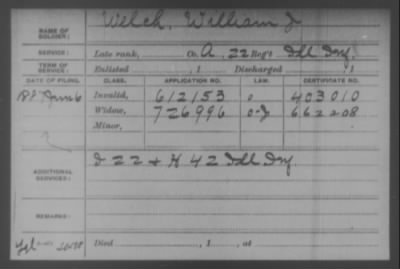 NAME OF SOLDIER: Welch, William J
SERVICE: Late rank, Co. A, 22 Reg't Ill Inf.
TERM OF SERVICE: Enlisted , 1 Discharged , 1
DATE OF FILING. CLASS. APPLICATION NO. LAW. CERTIFICATE NO.
Invalid, 612153 403010
Widow, 726996 662208
Minor,
ADDITIONAL SERVICES: D 22 & H 42 Ill Inf.
REMARKS:
Died , 1 , at